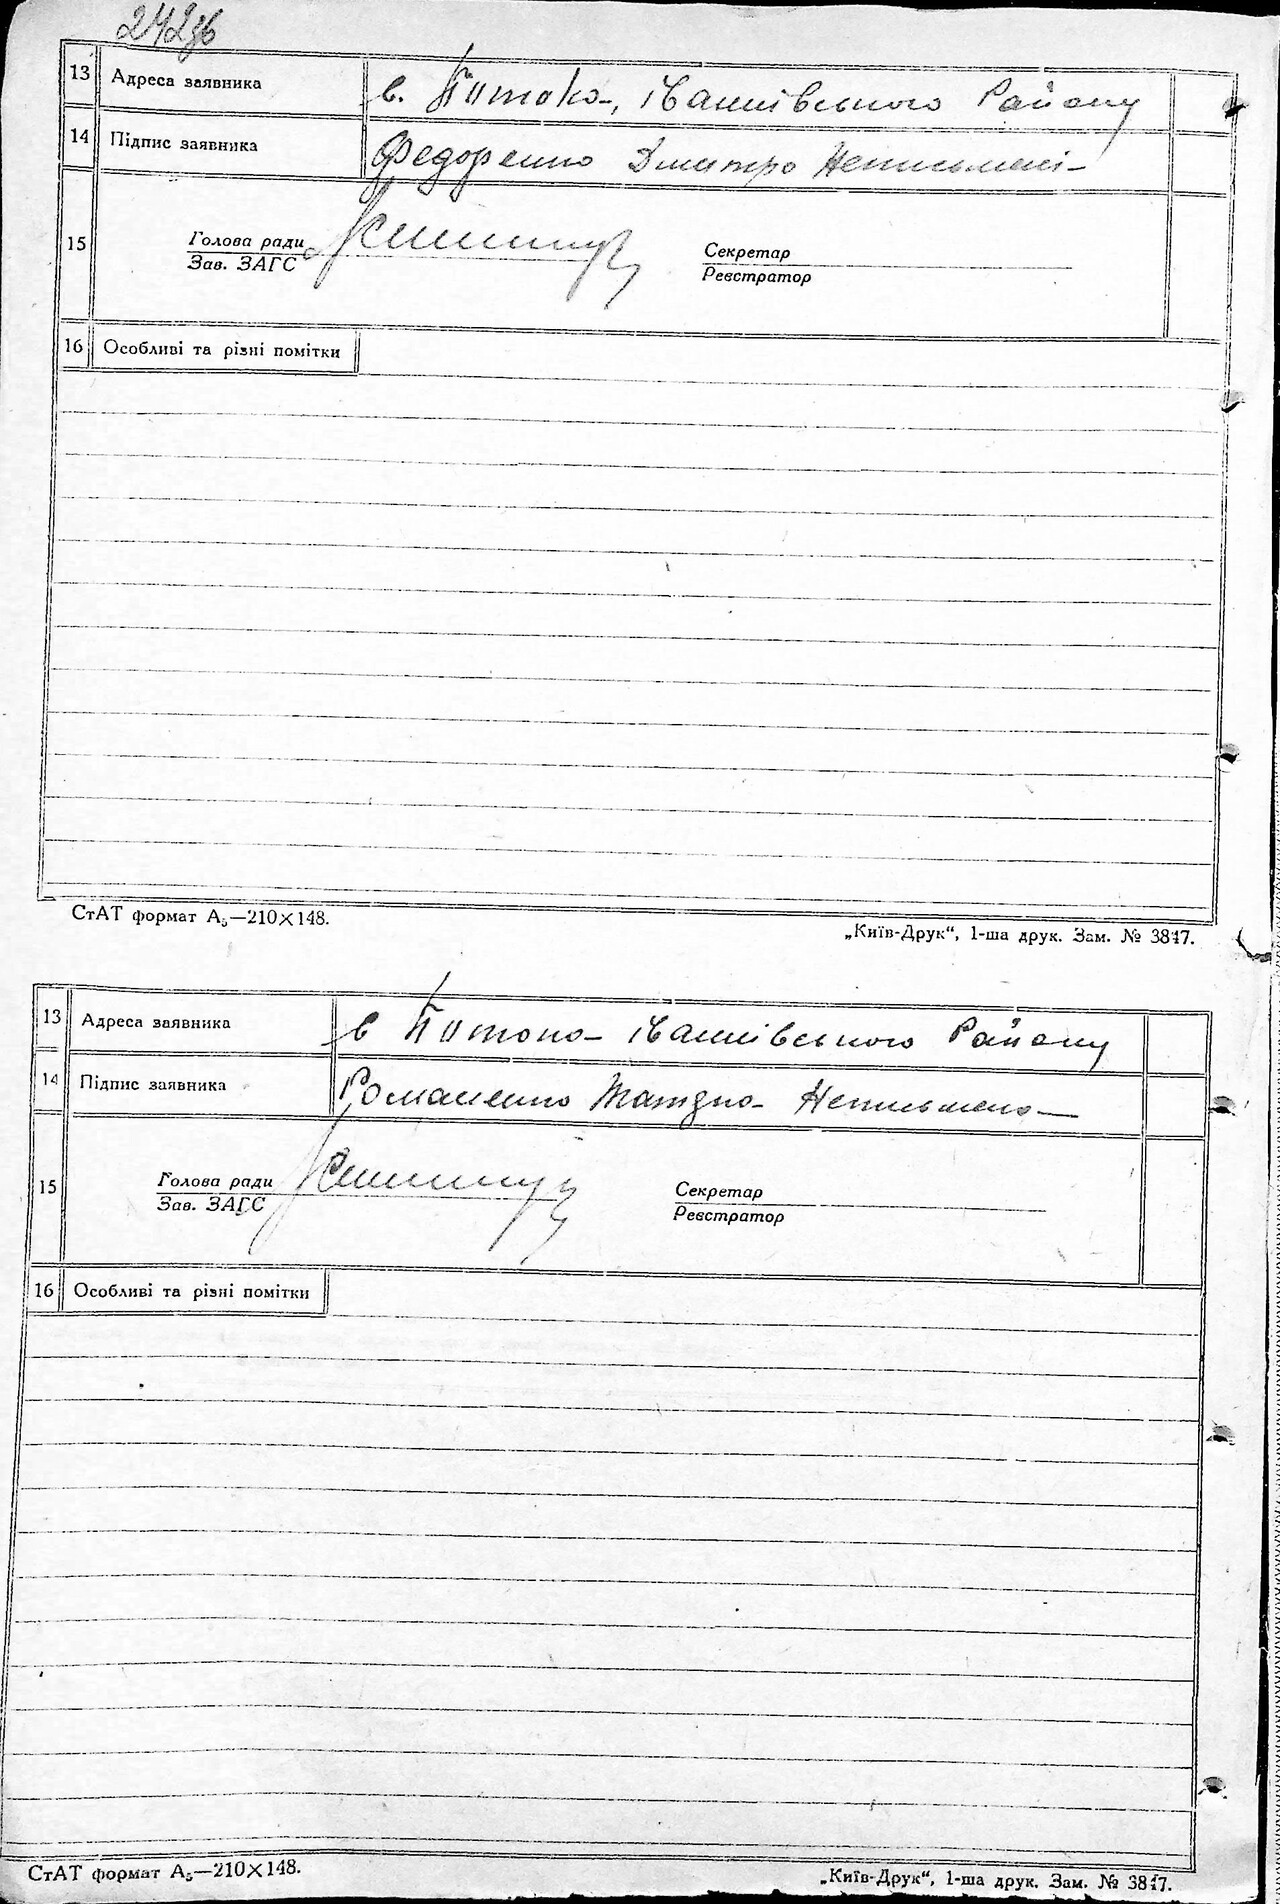 242зв
13 Адреса заявника в. Потока, Іванківського Району
14 Підпис заявника Федоренко Дмитро Неписьмені
15 Голова ради Секретар
Зав. ЗАГС Реєстратор
16 Особливі та різні помітки
СтАТ формат А₅—210×148. „Київ-Друк“, 1-ша друк. Зам. № 3847.
13 Адреса заявника в Потока Іванківського Району
14 Підпис заявника Романенко Неписьмена
15 Голова ради Секретар
Зав. ЗАГС Реєстратор
16 Особливі та різні помітки
СтАТ формат А₅—210×148. „Київ-Друк“, 1-ша друк. Зам. № 3847.